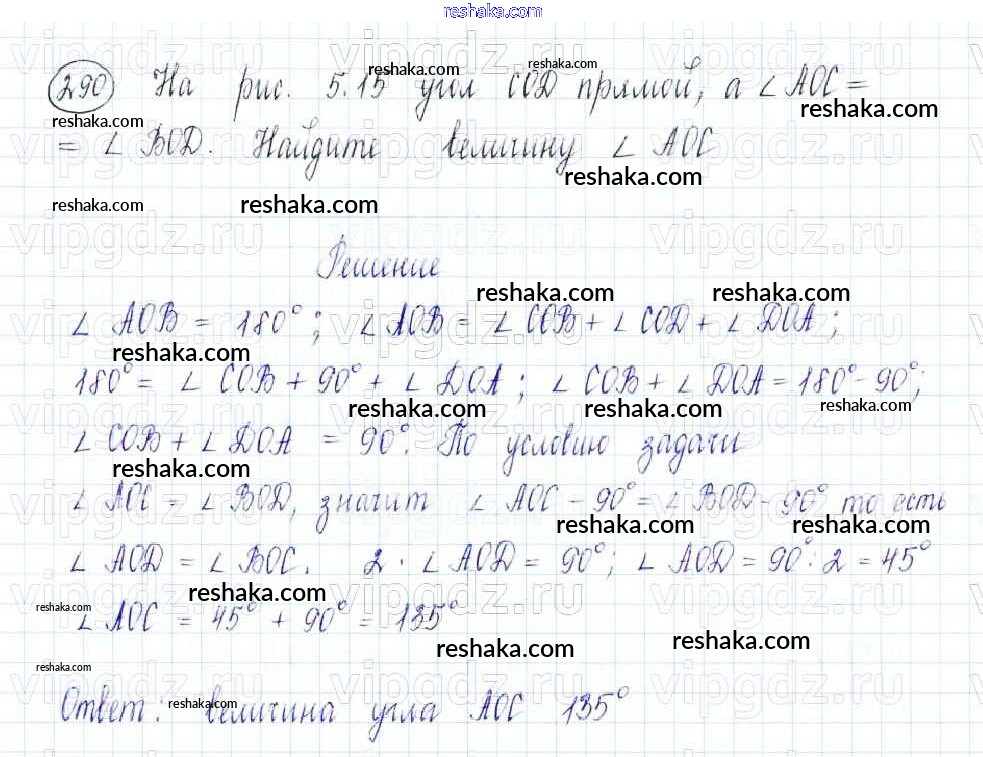 reshaka.com
290 На рис. 5.15 угол COD прямой, а ∠ AOC =
= ∠ BOD. Найдите величину ∠ AOC
Решение
∠ AOB = 180°; ∠ AOB = ∠ COB + ∠ COD + ∠ DOA;
180° = ∠ COB + 90° + ∠ DOA; ∠ COB + ∠ DOA = 180° - 90°;
∠ COB + ∠ DOA = 90°. По условию задачи
∠ AOC = ∠ BOD, значит ∠ AOC - 90° = ∠ BOD - 90° то есть
∠ AOD = ∠ BOC. 2 · ∠ AOD = 90°; ∠ AOD = 90° : 2 = 45°
∠ AOC = 45° + 90° = 135°
Ответ: величина угла AOC 135°